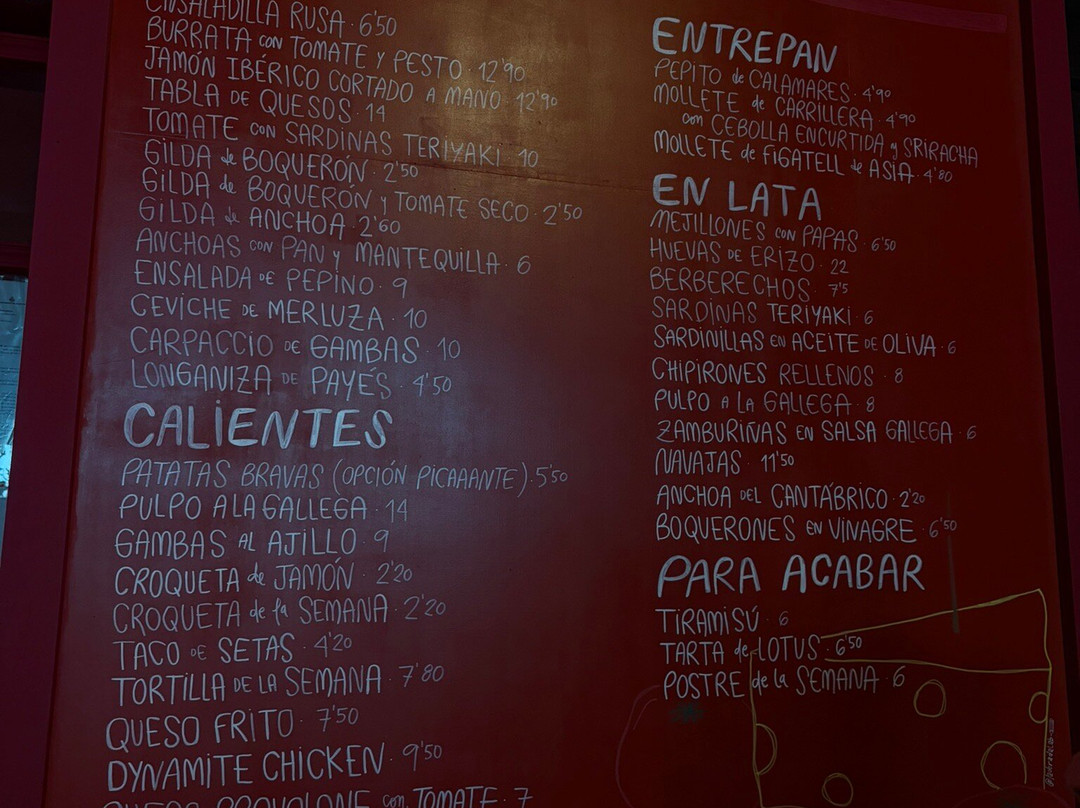 ENSALADILLA RUSA · 6'50
BURRATA con TOMATE y PESTO · 12'90
JAMÓN IBÉRICO CORTADO A MANO 12'90
TABLA DE QUESOS · 14
TOMATE con SARDINAS TERIYAKI · 10
GILDA de BOQUERÓN · 2'50
GILDA de BOQUERÓN y TOMATE SECO · 2'50
GILDA de ANCHOA · 2'60
ANCHOAS con PAN y MANTEQUILLA · 6
ENSALADA DE PEPINO · 9
CEVICHE DE MERLUZA · 10
CARPACCIO DE GAMBAS · 10
LONGANIZA DE PAYÉS · 4'50
CALIENTES
PATATAS BRAVAS (OPCIÓN PICAAANTE) · 5'50
PULPO A LA GALLEGA · 14
GAMBAS AL AJILLO · 9
CROQUETA de JAMÓN · 2'20
CROQUETA de la SEMANA · 2'20
TACO DE SETAS · 4'20
TORTILLA DE LA SEMANA · 7'80
QUESO FRITO · 7'50
DYNAMITE CHICKEN · 9'50
QUESO PROVOLONE con TOMATE · 7
ENTREPAN
PEPITO de CALAMARES · 4'90
MOLLETE de CARRILLERA · 4'90
con CEBOLLA ENCURTIDA y SRIRACHA
MOLLETE de FIGATELL de ASIA · 4'80
EN LATA
MEJILLONES con PAPAS · 6'50
HUEVAS DE ERIZO · 22
BERBERECHOS · 7'5
SARDINAS TERIYAKI · 6
SARDINILLAS EN ACEITE DE OLIVA · 6
CHIPIRONES RELLENOS · 8
PULPO A LA GALLEGA · 8
ZAMBURIÑAS EN SALSA GALLEGA · 6
NAVAJAS · 11'50
ANCHOA DEL CANTÁBRICO · 2'20
BOQUERONES EN VINAGRE · 6'50
PARA ACABAR
TIRAMISÚ · 6
TARTA de LOTUS · 6'50
POSTRE de la SEMANA · 6